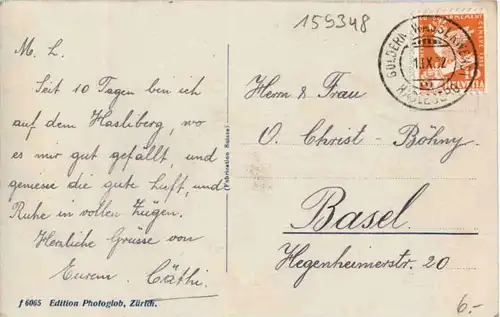 159348
M. L.
Seit 10 Tagen bin ich
auf dem Hasliberg, wo
es mir gut gefällt, und
geniesse die gute Luft, und
Ruhe in vollen Zügen.
Herzliche Grüsse von
Eurem Cäthi.
(Fabrication Suisse)
Herrn & Frau
O. Christ - Böhny
Basel.
Hegenheimerstr. 20
f 6065 Edition Photoglob, Zürich.
6.-